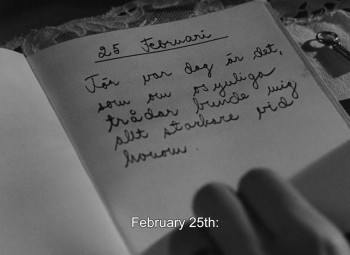 25 Februari
För var dag är det,
som om osynliga
trådar bunde mig
allt starkare vid
honom.
February 25th: